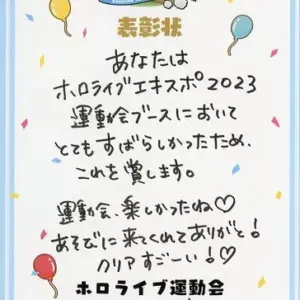 表彰状
あなたは
ホロライブエキスポ2023
運動会ブースにおいて
とてもすばらしかったため、
これを賞します。
運動会、楽しかったね♡
あそびに来てくれてありがと!
クリアすごーい!♡
ホロライブ運動会